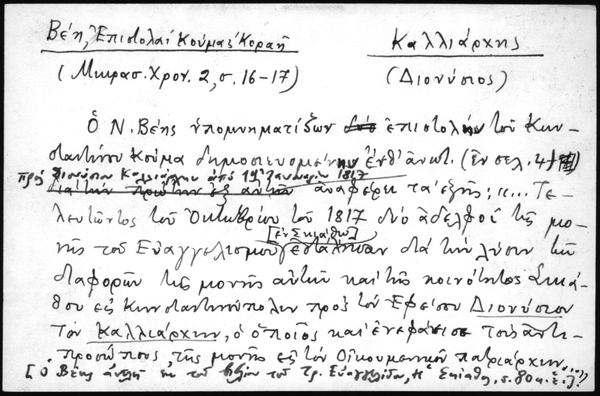 Βέη, Ἐπιστολαὶ Κούμα - Κοραῆ
Καλλιάρχης
(Μικρασ. Χρον. 2, σ. 16-17)
(Διονύσιος)
Ὁ Ν. Βέης ὑπομνηματίζων ἐπιστολὴν τοῦ Κων-
σταντίνου Κούμα δημοσιευομένην ἔνθ' ἀνωτ. (ἐν σελ. 4)
πρὸς Διονύσιον Καλλιάρχην ἀπὸ 19 Ἰανουαρ. 1817
ἀναφέρει τὰ ἑξῆς: «... Τε-
λευτῶντος τοῦ Ὀκτωβρίου τοῦ 1817 δύο ἀδελφοὶ τῆς μο-
[ἐν Σκιάθῳ]
νῆς τοῦ Εὐαγγελισμοῦ ἐστάλησαν διὰ τὴν λύσιν τῶν
διαφορῶν τῆς μονῆς αὐτῶν καὶ τῆς κοινότητος Σκιά-
θου εἰς Κωνσταντινούπολιν πρὸς τὸν Ἐφέσου Διονύσιον
τὸν Καλλιάρχην, ὁ ὁποῖος καὶ ἐνεφάνισε τοὺς ἀντι-
προσώπους τῆς μονῆς εἰς τὸν Οἰκουμενικὸν πατριάρχην...»
[Ὁ Βέης ἀντλεῖ ἐκ τοῦ βιβλίου τοῦ Τρ. Εὐαγγελίδου, Ἡ Σκίαθος, σ. 80 κ. ἑ.]